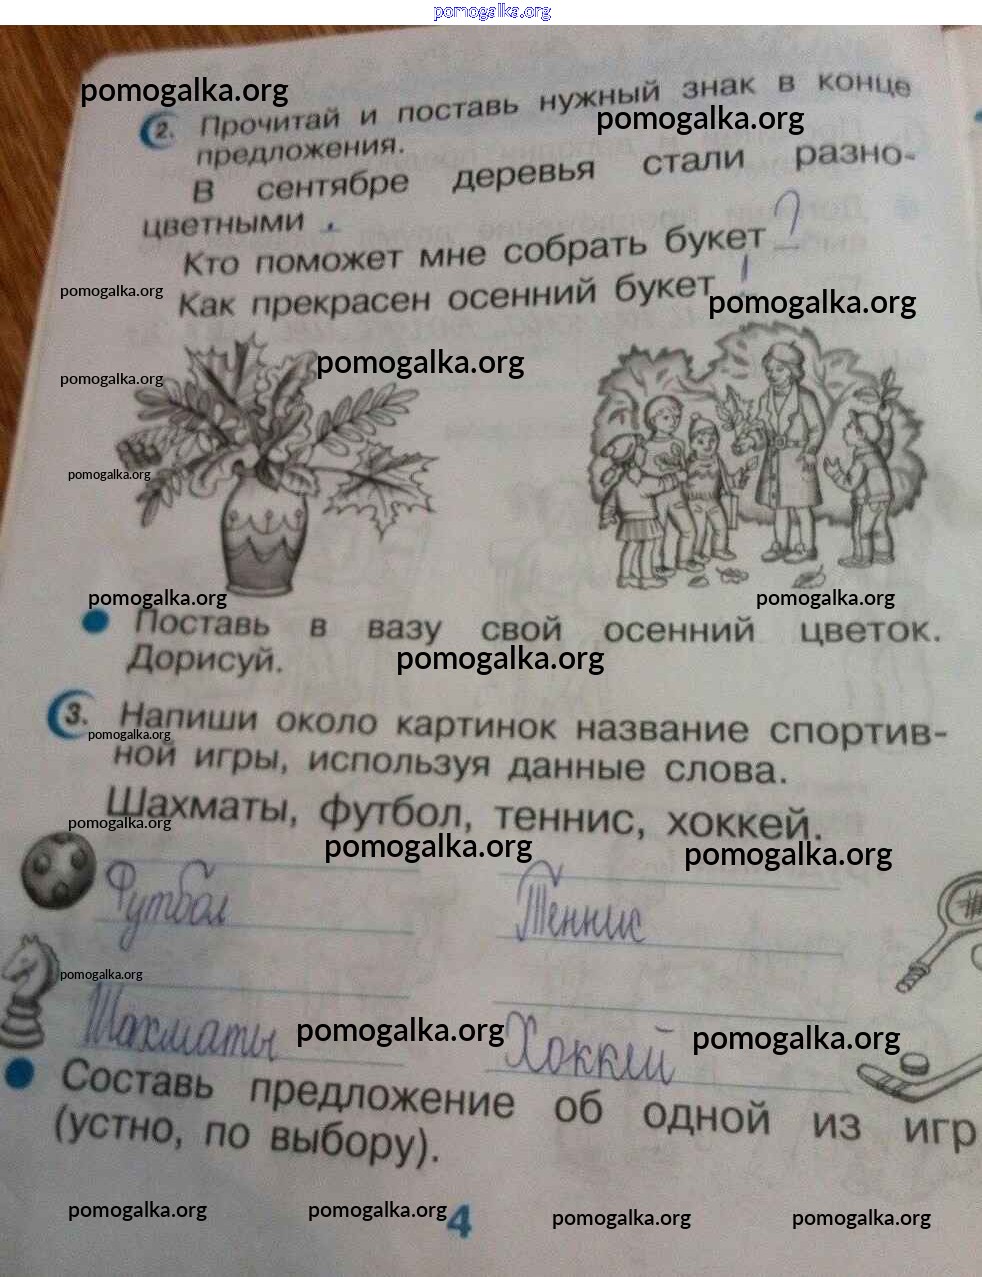 pomogalka.org
pomogalka.org
2. Прочитай и поставь нужный знак в конце
pomogalka.org
предложения.
В сентябре деревья стали разно-
цветными .
Кто поможет мне собрать букет ?
pomogalka.org
Как прекрасен осенний букет !
pomogalka.org
pomogalka.org
pomogalka.org
pomogalka.org
pomogalka.org
pomogalka.org
Поставь в вазу свой осенний цветок.
Дорисуй.
pomogalka.org
3. Напиши около картинок название спортив-
pomogalka.org
ной игры, используя данные слова.
Шахматы, футбол, теннис, хоккей.
pomogalka.org
pomogalka.org
pomogalka.org
Футбол Теннис
pomogalka.org
Шахматы Хоккей
pomogalka.org
pomogalka.org
Составь предложение об одной из игр
(устно, по выбору).
pomogalka.org
pomogalka.org
4
pomogalka.org
pomogalka.org